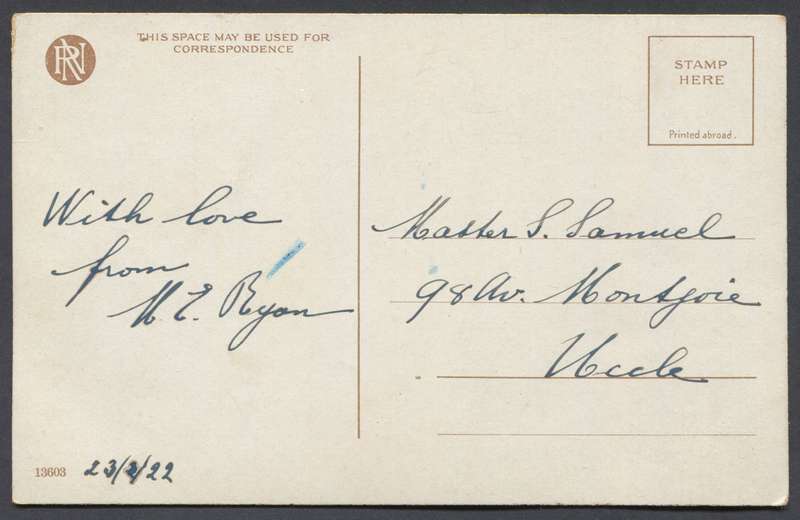 RN
THIS SPACE MAY BE USED FOR
CORRESPONDENCE
STAMP
HERE
Printed abroad.
With love
from
M. E. Ryan
Master S. Samuel
98 Av. Montjoie
Uccle
13603
23/2/22